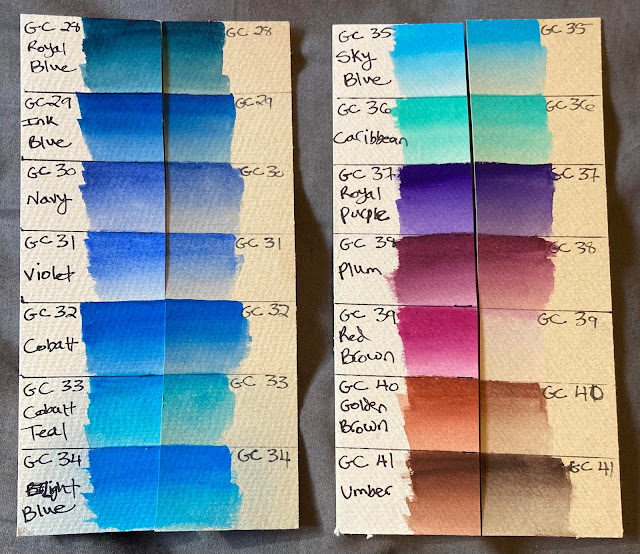 GC 28
Royal
Blue
GC 28
GC 29
Ink
Blue
GC 29
GC 30
Navy
GC 30
GC 31
Violet
GC 31
GC 32
Cobalt
GC 32
GC 33
Cobalt
Teal
GC 33
GC 34
Blue
GC 34
GC 35
Sky
Blue
GC 35
GC 36
Caribbean
GC 36
GC 37
Royal
Purple
GC 37
GC 38
Plum
GC 38
GC 39
Red
Brown
GC 39
GC 40
Golden
Brown
GC 40
GC 41
Umber
GC 41